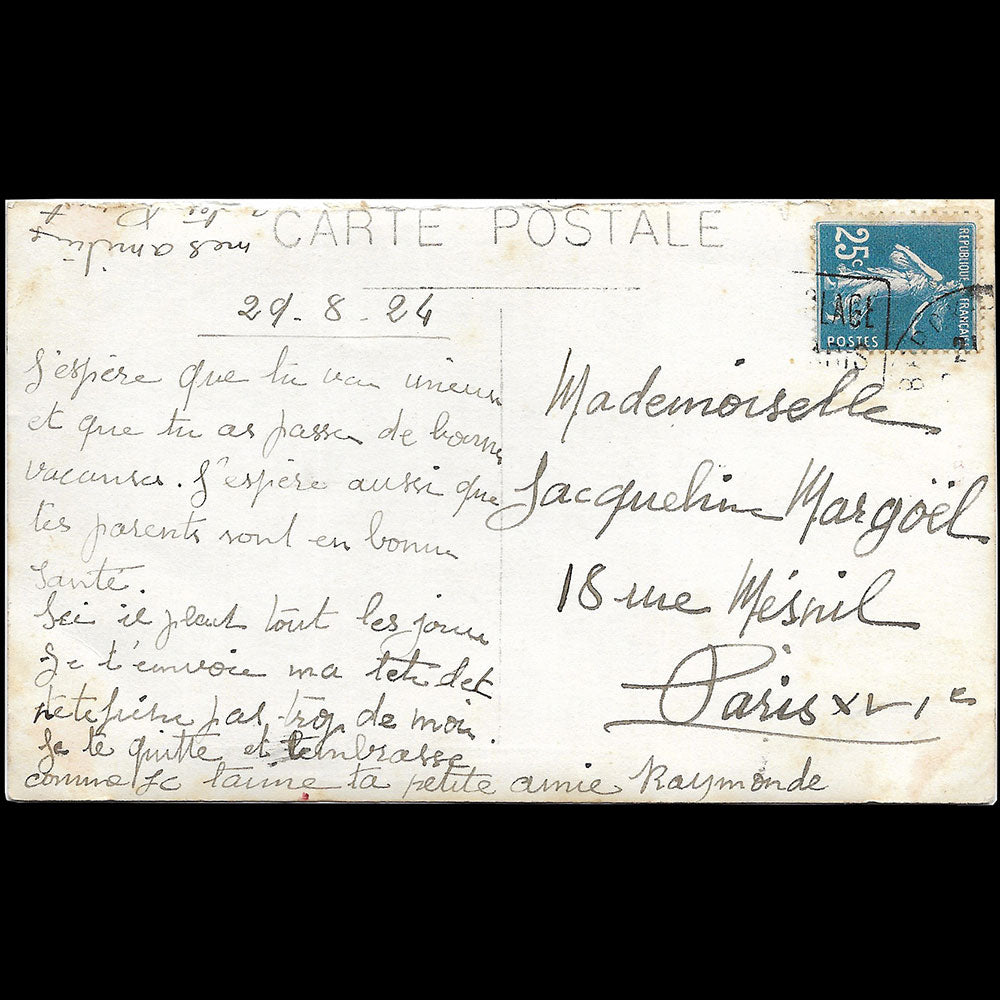 CARTE POSTALE
mes amitiés
29 - 8 - 24
J'espère que tu va mieux
et que tu as passer de bonnes
vacanses. J'espère aussi que
tes parents sont en bonne
santé.
Ici il pleut tout les jours
Je t'envoie ma tête det
pas trop de moi
Je te quitte et t'embrasse
comme je t'aime ta petite amie Raymonde
25c
REPUBLIQUE FRANÇAISE
POSTES
LAGE
Mademoiselle
Jacqueline Margöël
18 rue Mésnil
Paris XVIe